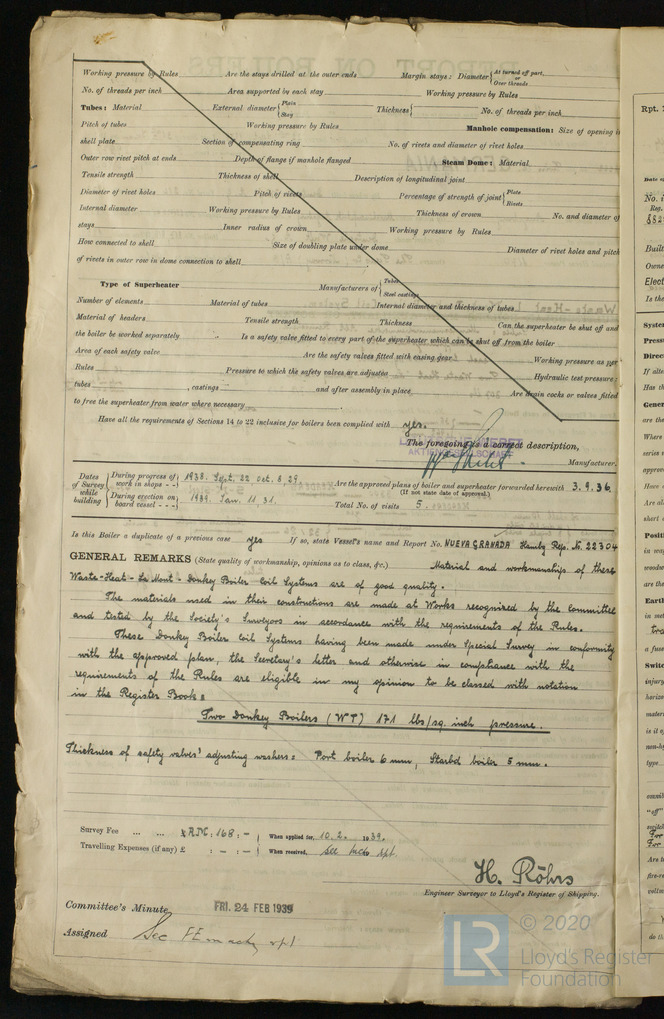 Working pressure by Rules Are the stays drilled at the outer ends Margin stays: Diameter { At turned off part, or Over threads
No. of threads per inch Area supported by each stay Working pressure by Rules
Tubes: Material External diameter { Plain Stay Thickness { No. of threads per inch
Pitch of tubes Working pressure by Rules Manhole compensation: Size of opening i
shell plate Section of compensating ring No. of rivets and diameter of rivet holes
Outer row rivet pitch at ends Depth of flange if manhole flanged Steam Dome: Material
Tensile strength Thickness of shell Description of longitudinal joint
Diameter of rivet holes Pitch of rivets Percentage of strength of joint { Plate Rivets
Internal diameter Working pressure by Rules Thickness of crown No. and diameter of
stays Inner radius of crown Working pressure by Rules
How connected to shell Size of doubling plate under dome Diameter of rivet holes and pitch
of rivets in outer row in dome connection to shell
Type of Superheater Manufacturers of { Tubes Steel castings
Number of elements Material of tubes Internal diameter and thickness of tubes
Material of headers Tensile strength Thickness Can the superheater be shut off and
the boiler be worked separately Is a safety valve fitted to every part of the superheater which can be shut off from the boiler
Area of each safety valve Are the safety valves fitted with easing gear Working pressure as per
Rules Pressure to which the safety valves are adjusted Hydraulic test pressure:
tubes , castings and after assembly in place Are drain cocks or valves fitted
to free the superheater from water where necessary
Have all the requirements of Sections 14 to 22 inclusive for boilers been complied with yes.
The foregoing is a correct description,
AKTIENGESELLSCHAFT
Manufacturer.
Dates of Survey while building { During progress of work in shops - - 1938. Sept. 22 Oct. 8 29 Are the approved plans of boiler and superheater forwarded herewith 3.9.36.
(If not state date of approval.)
During erection on board vessel - - - 1939. Jan. 11 31. Total No. of visits 5.
Is this Boiler a duplicate of a previous case yes If so, state Vessel's name and Report No. NUEVA GRANADA Hambg Rep. N. 22304
GENERAL REMARKS (State quality of workmanship, opinions as to class, &c.) Material and workmanship of these
Waste-Heat - La Mont - Donkey Boiler Coil Systems are of good quality.
The materials used in their constructions are made at Works recognized by the Committee
and tested by the Society's Surveyors in accordance with the requirements of the Rules.
These Donkey Boiler Coil Systems having been made under Special Survey in conformity
with the approved plan, the Secretary's letter and otherwise in compliance with the
requirements of the Rules are eligible in my opinion to be classed with notation
in the Register Book:
Two Donkey Boilers (WT) 171 lbs/sq. inch pressure.
Thickness of safety valves' adjusting washers: Port boiler 6 mm, Starbd boiler 5 mm.
Survey Fee ... ... RM: 168 : - When applied for, 10.2. 1939.
Travelling Expenses (if any) £ : - : - When received, see mchy rpt.
H. Röhrs
Engineer Surveyor to Lloyd's Register of Shipping.
Committee's Minute FRI. 24 FEB 1939
Assigned See FE mchy rpt
© 2020
LR Lloyd's Register
Foundation